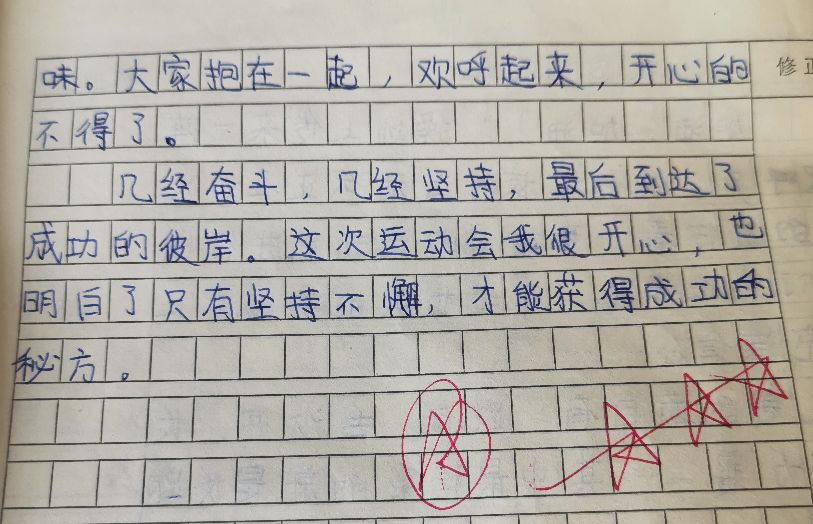 味。大家抱在一起，欢呼起来，开心的
修正
不得了。
几经奋斗，几经坚持，最后到达了
成功的彼岸。这次运动会我很开心，也
明白了只有坚持不懈，才能获得成功的
秘方。